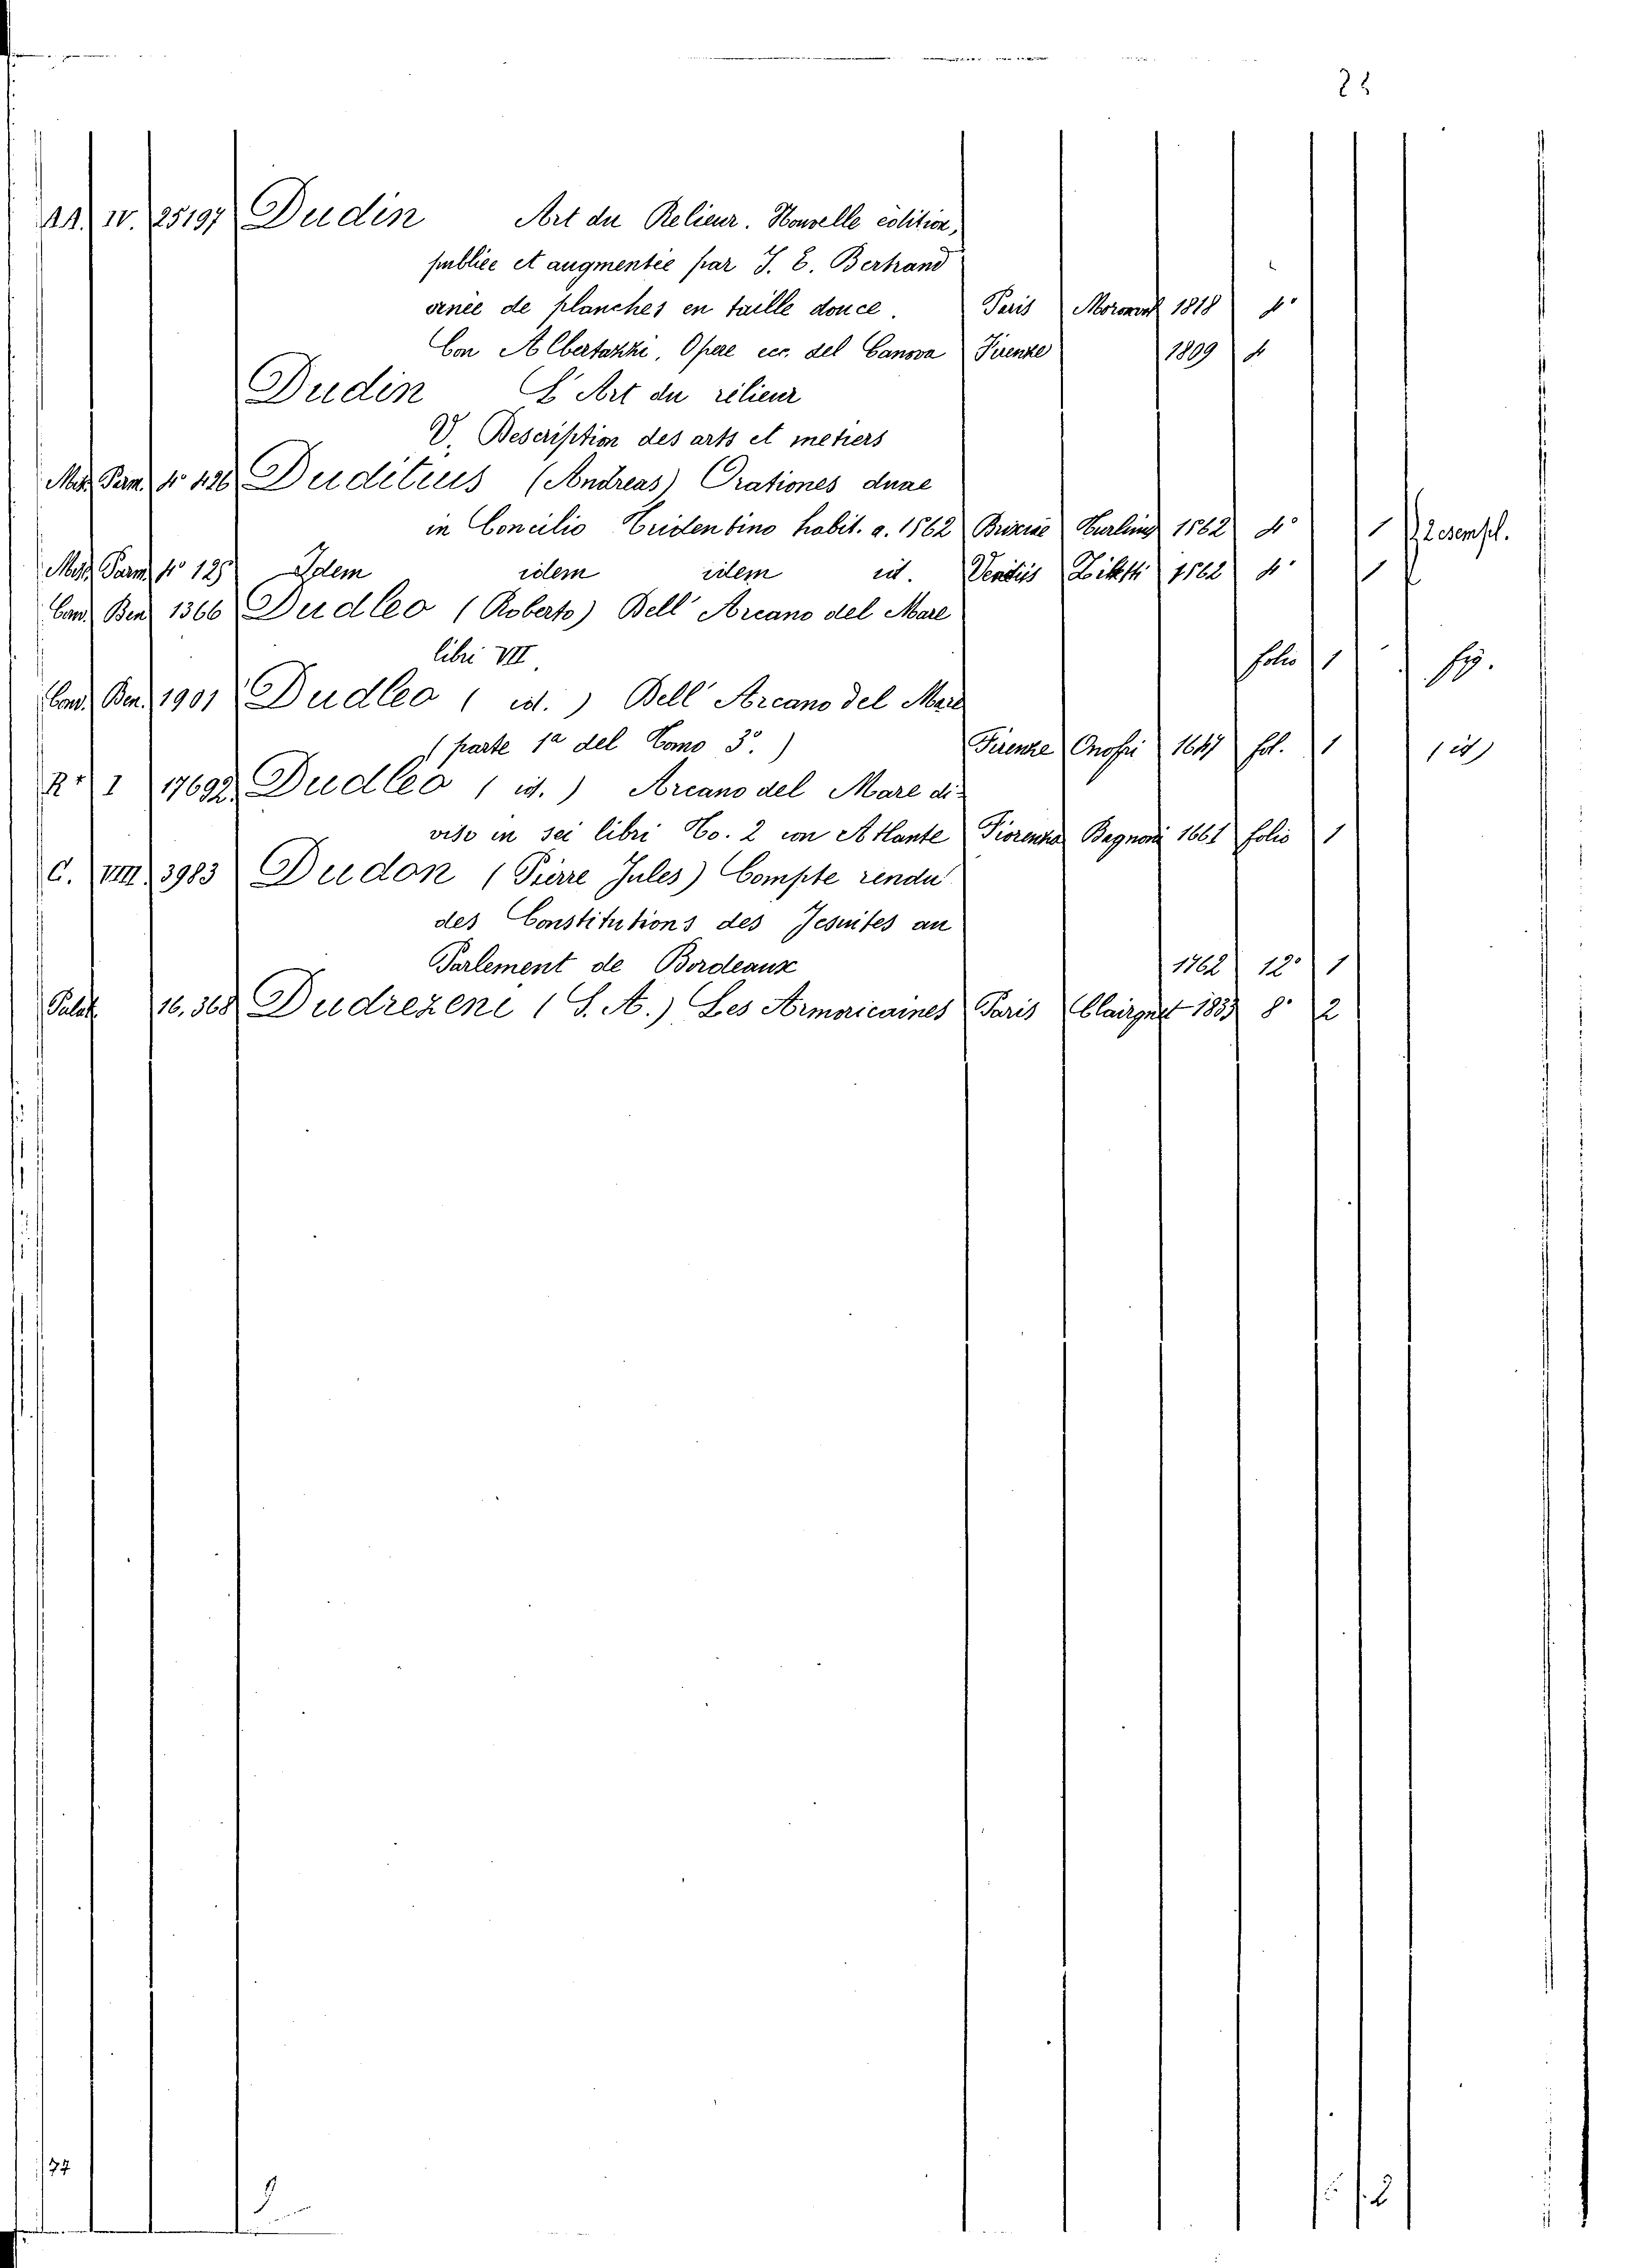 AA. IV. 25197 Dudin Art du Relieur. Nouvelle édition,
publiée et augmentée par J. E. Bertrand
ornée de planches en taille douce. Paris Moronval 1818 4°
Con Albertazzi, Opere ecc. del Canova Firenze 1809 4
Dudin L'Art du rélieur
V. Description des arts et metiers
Misc. Parm. 4° 426 Duditius (Andreas) Orationes duae
in Concilio Tridentino habit. a. 1562 Brixiae Turlini 1562 4° 1 2 esempl.
Misc. Parm. 4° 125 Idem idem idem cit. Venetiis Ziletti 1562 4° 1
Cam. Ben. 1366 Dudleo (Roberto) Dell' Arcano del Mare
libri VII folio 1 fig.
Cam. Ben. 1901 Dudleo ( id. ) Dell' Arcano del Mare
(parte 1a del Tomo 3°.) Firenze Onofri 1647 fol. 1 (id)
R+ I 17692 Dudleo ( id. ) Arcano del Mare di-
viso in sei libri To. 2 con Atlante Fiorenza Bagnoni 1661 folio 1
C. VIII 3983 Dudon (Pierre Jules) Compte rendu
des Constitutions des Jesuites au
Parlement de Bordeaux 1762 12° 1
Palat. 16.368 Dudrezene (S. A.) Les Armoricaines Paris 1833 8° 2